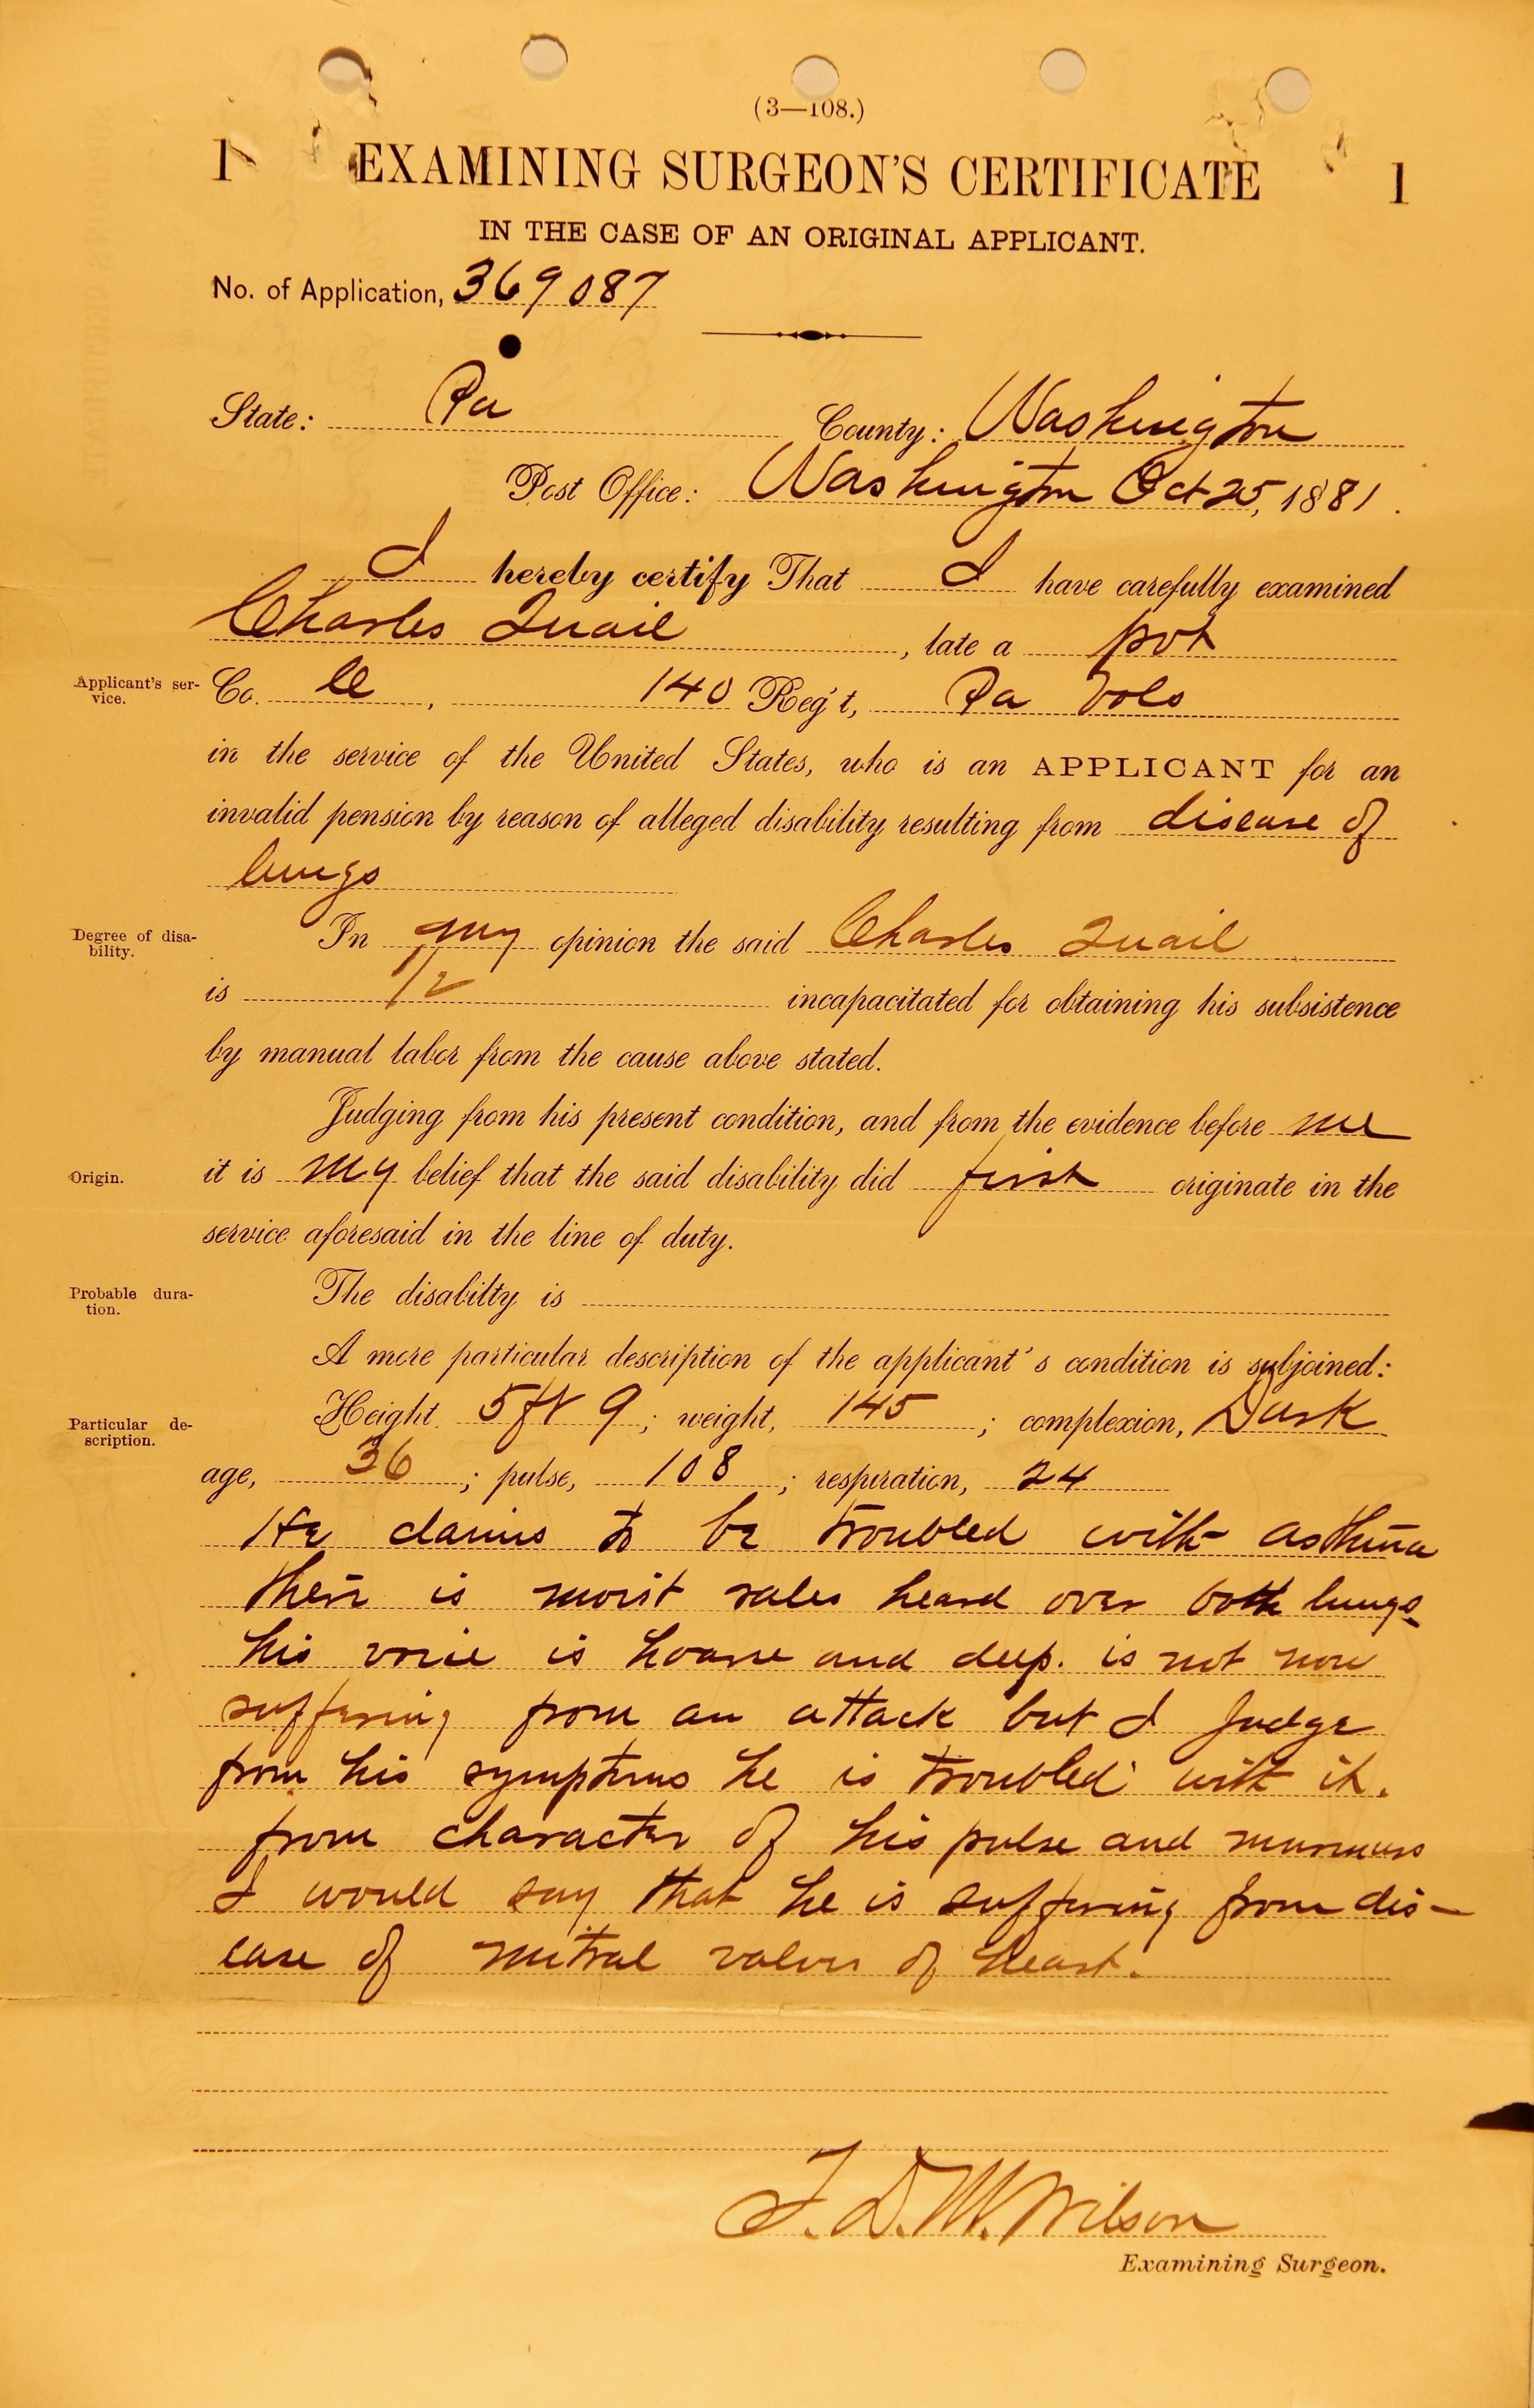 (3—108.)
1 EXAMINING SURGEON'S CERTIFICATE 1
IN THE CASE OF AN ORIGINAL APPLICANT.
No. of Application, 369087
State: Pa County: Washington
Post Office: Washington Oct 25, 1881.
I hereby certify That I have carefully examined
Charles Quail, late a pvt
Applicant's ser-
vice.
Co. C, 140 Reg't, Pa Vols
in the service of the United States, who is an APPLICANT for an
invalid pension by reason of alleged disability resulting from disease of
lungs
Degree of disa-
bility.
In my opinion the said Charles Quail
is 1/2 incapacitated for obtaining his subsistence
by manual labor from the cause above stated.
Judging from his present condition, and from the evidence before me
Origin.
it is my belief that the said disability did first originate in the
service aforesaid in the line of duty.
Probable dura-
tion.
The disabilty is
A more particular description of the applicant's condition is subjoined:
Particular de-
scription.
Height, 5 ft 9; weight, 145; complexion, Dark
age, 36; pulse, 108; respiration, 24
He claims to be troubled with asthma
there is moist rales heard over both lungs
his voice is hoarse and deep. is not now
suffering from an attack but I judge
from his symptoms he is troubled with it.
from character of his pulse and murmurs
I would say that he is suffering from dis-
ease of mitral valves of heart.
T. D. M. Wilson
Examining Surgeon.